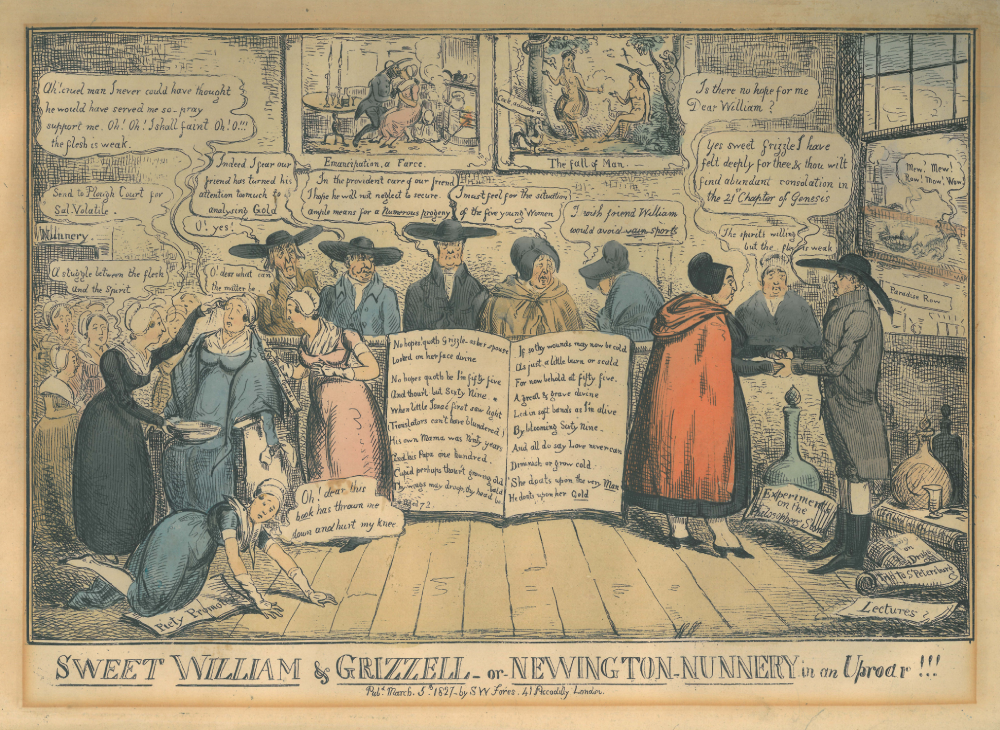 Ah! cruel man I never could have thought
he would have served me so - pray
support me. Oh! Oh! I shall faint Oh! O!!!
the flesh is weak.
Send to Plough Court for
Sal. Volatile.
Nunnery.
A stuggle between the flesh
and the Spirit
Indeed I fear our
friend has turned his
attention too much to
analysing Gold
O! yes!
O! dear what can
the matter be
Emancipation, a Farce.
In the provident care of our friend
I hope he will not neglect to secure
ample means for a Numerous progeny
I must feel for the situation
of the five young Women
The fall of Man.
I wish friend William
would avoid vain sports
Is there no hope for me
Dear William?
Yes sweet Grizzle I have
felt deeply for thee & thou wilt
find abundant consolation in
the 21st Chapter of Genesis
The spirit's willing
but the flesh is weak
Mew! Mew!
Mew! Mow! Wow!
Paradise Row
No hopes! quoth Grizzle as her spouse
Looked on her face divine
No hopes quoth he I'm fifty five
And thou'rt but Sixty Nine.
When little Isaac first saw light
(Translators can't have blundered)
His own Mama was Ninty years
And his Papa one hundred.
Cupid perhaps thou'rt growing old
Thy wings may droop, thy head be bald
Aged 72.
If so thy wounds may now be cold
As just a little burn or scald
For now behold at fifty five.
A great & grave divine
Led in soft bonds as I'm alive
By blooming Sixty Nine.
And all do say Love never can
Diminish or grow cold.
She doats upon the very Man
He doats upon her Gold
Oh! dear this
book has thrown me
down and hurt my knee
Piety Promo
Experiments
on the
Philosophers S
on
Trip to St Petersburg
Lectures?
SWEET WILLIAM & GRIZZELL - or - NEWINGTON - NUNNERY in an Uproar!!!
Pubd. March. 5th 1827 - by S W Fores. 41 Piccadilly London.